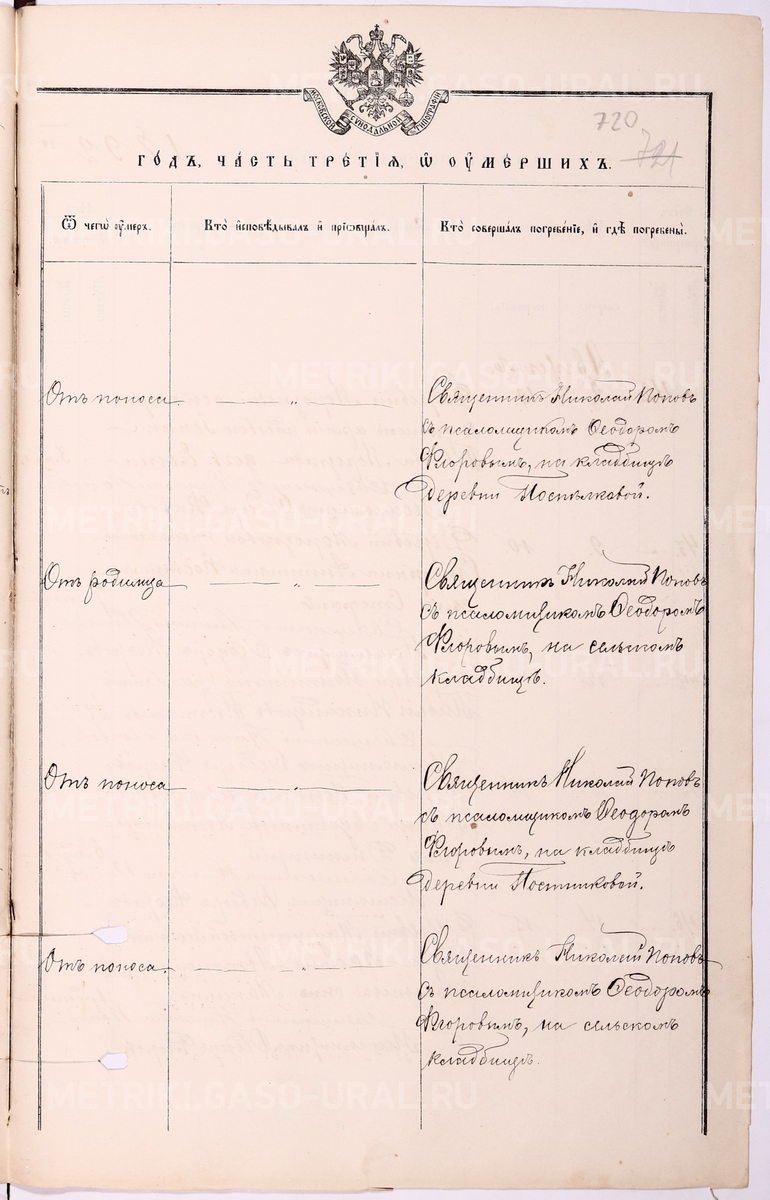 МОСКОВСКОЙ СѴНОДАЛЬНОЙ ТИПОГРАФІИ
720
721
ГО́ДЪ, ЧА́СТЬ ТРЕ́ТІѦ, Ѡ҆ ОУ҆МЕ́РШИХЪ.
Ѿ чегѡ̀ оу҆́меръ.
Кто̀ и҆сповѣ́дывалъ и҆ прїѡбща́лъ.
Кто̀ соверша́лъ погребе́нїе, и҆ гдѣ̀ погребены̀.
Отъ поноса. — „ —
Священникъ Николай Поповъ
съ псаломщикомъ Ѳеодоромъ
Флоровымъ, на кладбищѣ
деревни
Отъ родимца — „ —
Священникъ Николай Поповъ
съ псаломщикомъ Ѳеодоромъ
Флоровымъ, на сельскомъ
кладбищѣ.
Отъ поноса — „ —
Священникъ Николай Поповъ
съ псаломщикомъ Ѳеодоромъ
Флоровымъ, на кладбищѣ
деревни Постниковой.
Отъ поноса. — „ —
Священникъ Николай Поповъ
съ псаломщикомъ Ѳеодоромъ
Флоровымъ, на сельскомъ
кладбищѣ.
METRIKI.GASO-URAL.RU